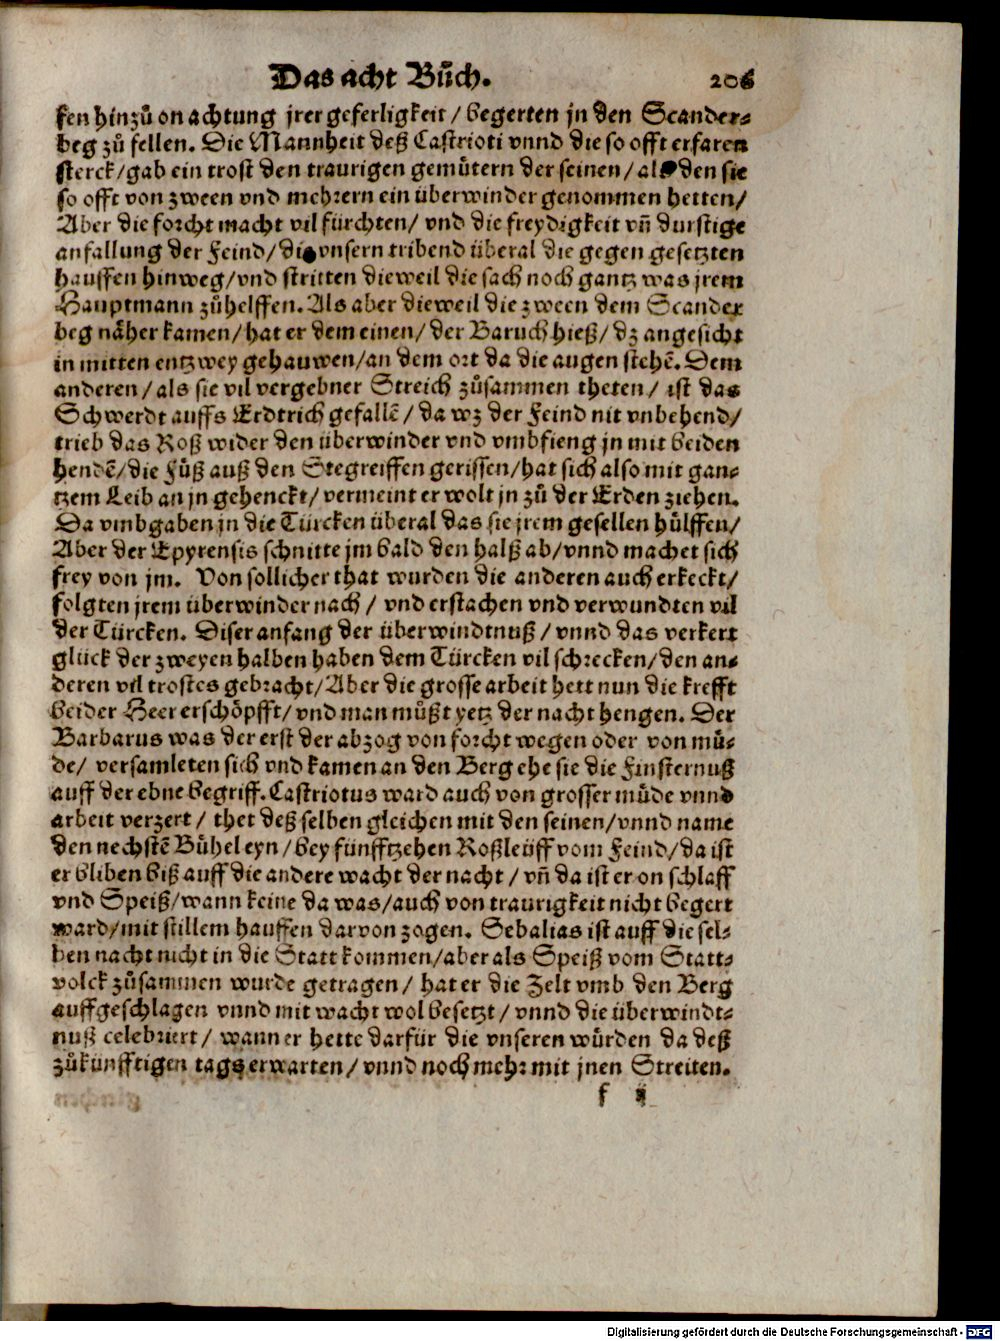 Das acht Bůch. 206
ken hinzů on achtung jrer geferligkeit / begerten jn den Scander-
beg zů fellen. Die Mannheit deß Castrioti vnnd die so offt erfaren
sterck / gab ein trost den traurigen gemůtern der seinen / als den sie
so offt von zween vnd mehrern ein überwinder genommen hetten /
Aber die forcht macht vil fürchten / vnd die freydigkeit vñ durstige
anfallung der Feind / die vnsern tribend überal die gegen gesetzten
hauffen hinweg / vnd stritten dieweil die sach noch gantz was jrem
Hauptmann zůhelffen. Als aber dieweil die zween dem Scander
beg näher kamen / hat er dem einen / der Baruch hieß / dz angesicht
in mitten entzwey gehauwen / an dem ort da die augen stehẽ. Dem
anderen / als sie vil vergebner Streich zůsammen theten / ist das
Schwerdt auffs Erdtrich gefallẽ / da wz der Feind nit vnbehend /
trieb das Roß wider den überwinder vnd vmbfieng jn mit beiden
hendẽ / die Fůß auß den Stegreiffen gerissen / hat sich also mit gan-
tzem Leib an jn gehenckt / vermeint er wolt jn zů der Erden ziehen.
Da vmbgaben jn die Türcken überal das sie jrem gesellen hülffen /
Aber der Epyrensis schnitte jm bald den halß ab / vnnd machet sich
frey von jm. Von sollicher that wurden die anderen auch erkeckt /
folgten jrem überwinder nach / vnd erstachen vnd verwundten vil
der Türcken. Diser anfang der überwindtnuß / vnnd das verkert
glück der zweyen halben haben dem Türcken vil schrecken / den an-
deren vil trostes gebracht / Aber die grosse arbeit hett nun die krefft
beider Heer erschöpfft / vnd man můßt yetz der nacht hengen. Der
Barbarus was der erst der abzog von forcht wegen oder von mů-
de / versamleten sich vnd kamen an den Berg ehe sie die Finsternuß
auff der ebne begriff. Castriotus ward auch von grosser můde vnnd
arbeit verzert / thet deß selben gleichen mit den seinen / vnnd name
den nechstẽ Bůhel eyn / bey fünfftzehen Roßleüff vom Feind / da ist
er bliben biß auff die andere wacht der nacht / vñ da ist er on schlaff
vnd Speiß / wann keine da was / auch von traurigkeit nicht begert
ward / mit stillem hauffen darvon zogen. Sebalias ist auff die sel-
ben nacht nicht in die Statt kommen / aber als Speiß vom Statt-
volck zůsammen wurde getragen / hat er die Zelt vmb den Berg
auffgeschlagen vnnd mit wacht wol besetzt / vnnd die überwindt-
nuß celebriert / wann er hette darfür die vnseren würden da deß
zůkünfftigen tags erwarten / vnnd noch mehr mit jnen Streiten.
f
Digitalisierung gefördert durch die Deutsche Forschungsgemeinschaft - DFG